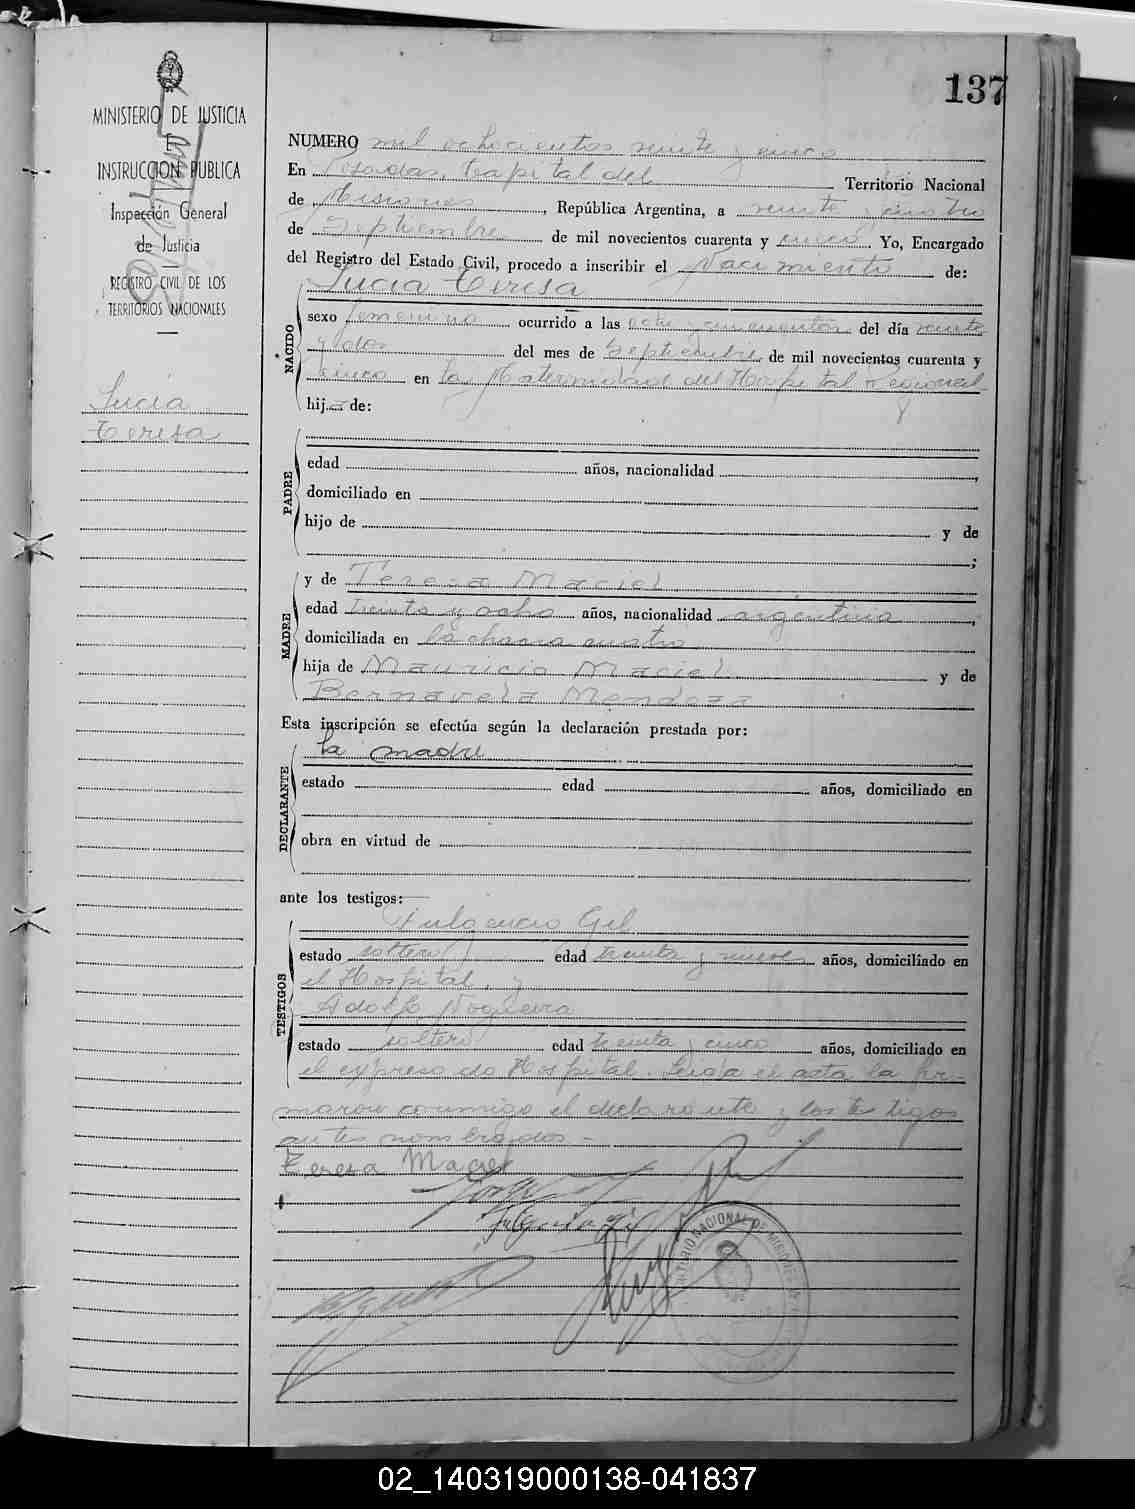 137
MINISTERIO DE JUSTICIA
E
INSTRUCCION PUBLICA
Inspección General
de Justicia
REGISTRO CIVIL DE LOS
TERRITORIOS NACIONALES
Lucia
Teresa
NUMERO mil ochocientos veinte y cinco
En Posadas, Capital del Territorio Nacional
de Misiones, República Argentina, a veinte cuatro
de Septiembre de mil novecientos cuarenta y cinco Yo, Encargado
del Registro del Estado Civil, procedo a inscribir el Nacimiento de:
NACIDO
Lucia Teresa
sexo femenino ocurrido a las ocho del día veinte
y dos del mes de Septiembre de mil novecientos cuarenta y
cinco en la Maternidad del Hospital Regional
hija de:
PADRE
edad años, nacionalidad ,
domiciliado en
hijo de y de
;
MADRE
y de Teresa Maciel
edad treinta y ocho años, nacionalidad argentina,
domiciliada en la chacra cuatro
hija de Mauricio Maciel y de
Bernavela Mendoza
Esta inscripción se efectúa según la declaración prestada por:
DECLARANTE
la madre
estado edad años, domiciliado en
obra en virtud de
ante los testigos:
TESTIGOS
Fulgencio Gil
estado soltero edad treinta y nueve años, domiciliado en
el Hospital, y
Adolfo Nogueira
estado soltero edad treinta y cinco años, domiciliado en
el expresado Hospital. Leida el acta la fir-
maron conmigo el declarante y los testigos
antes nombrados -
Teresa Maciel
Fulgencio Gil
TERRITORIO NACIONAL DE MISIONES
02_140319000138-041837